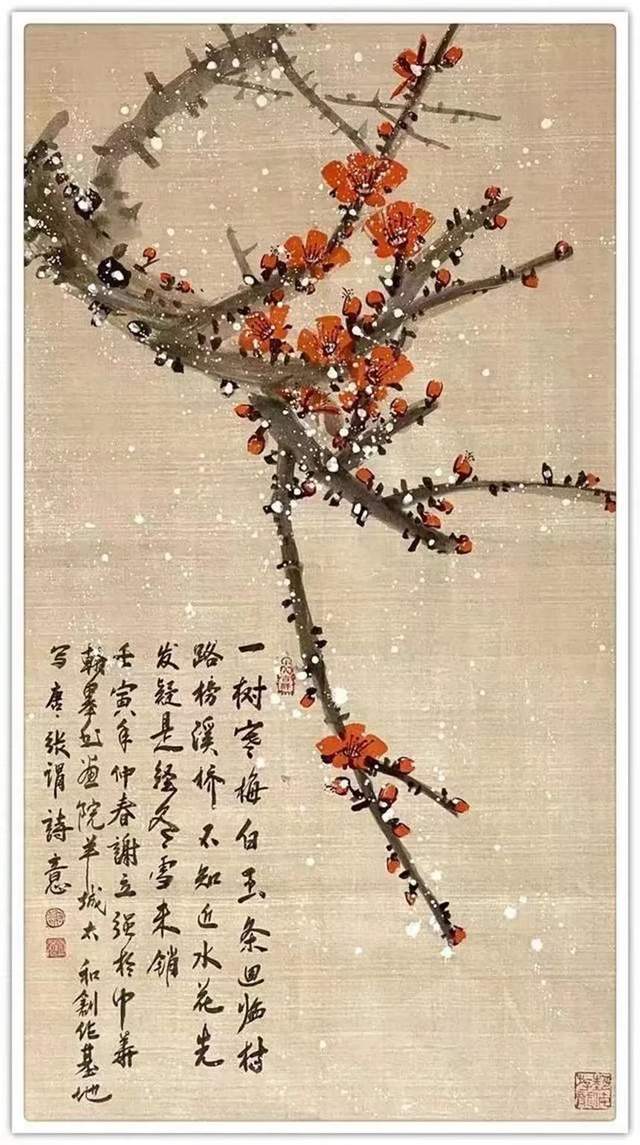 一树寒梅白玉条迥临村
路榜溪桥不知近水花先
发疑是经冬雪未销
壬寅年仲春謝立强於中華
翰墨书畫院羊城太和創作基地
写唐张谓詩意